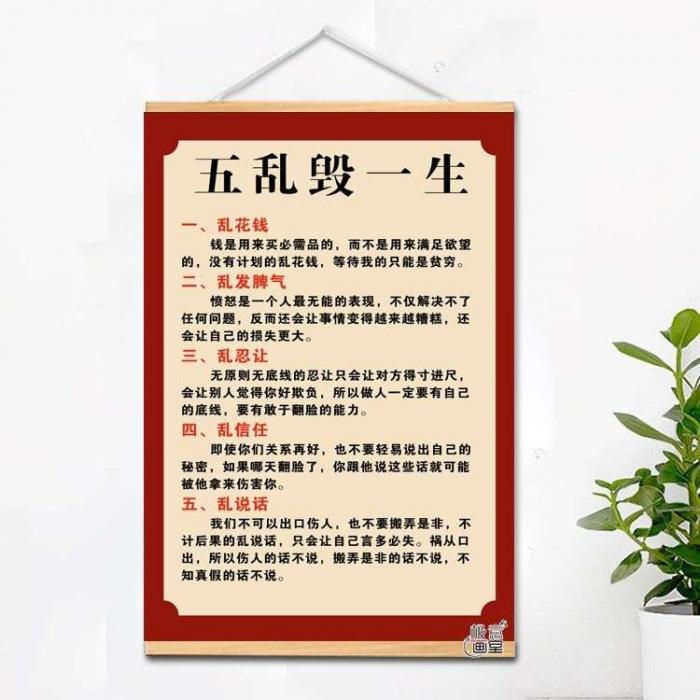 五乱毁一生
一、乱花钱
钱是用来买必需品的，而不是用来满足欲望
的，没有计划的乱花钱，等待我的只能是贫穷。
二、乱发脾气
愤怒是一个人最无能的表现，不仅解决不了
任何问题，反而还会让事情变得越来越糟糕，还
会让自己的损失更大。
三、乱忍让
无原则无底线的忍让只会让对方得寸进尺，
会让别人觉得你好欺负，所以做人一定要有自己
的底线，要有敢于翻脸的能力。
四、乱信任
即使你们关系再好，也不要轻易说出自己的
秘密，如果哪天翻脸了，你跟他说这些话就可能
被他拿来伤害你。
五、乱说话
我们不可以出口伤人，也不要搬弄是非，不
计后果的乱说话，只会让自己言多必失。祸从口
出，所以伤人的话不说，搬弄是非的话不说，不
知真假的话不说。
画室